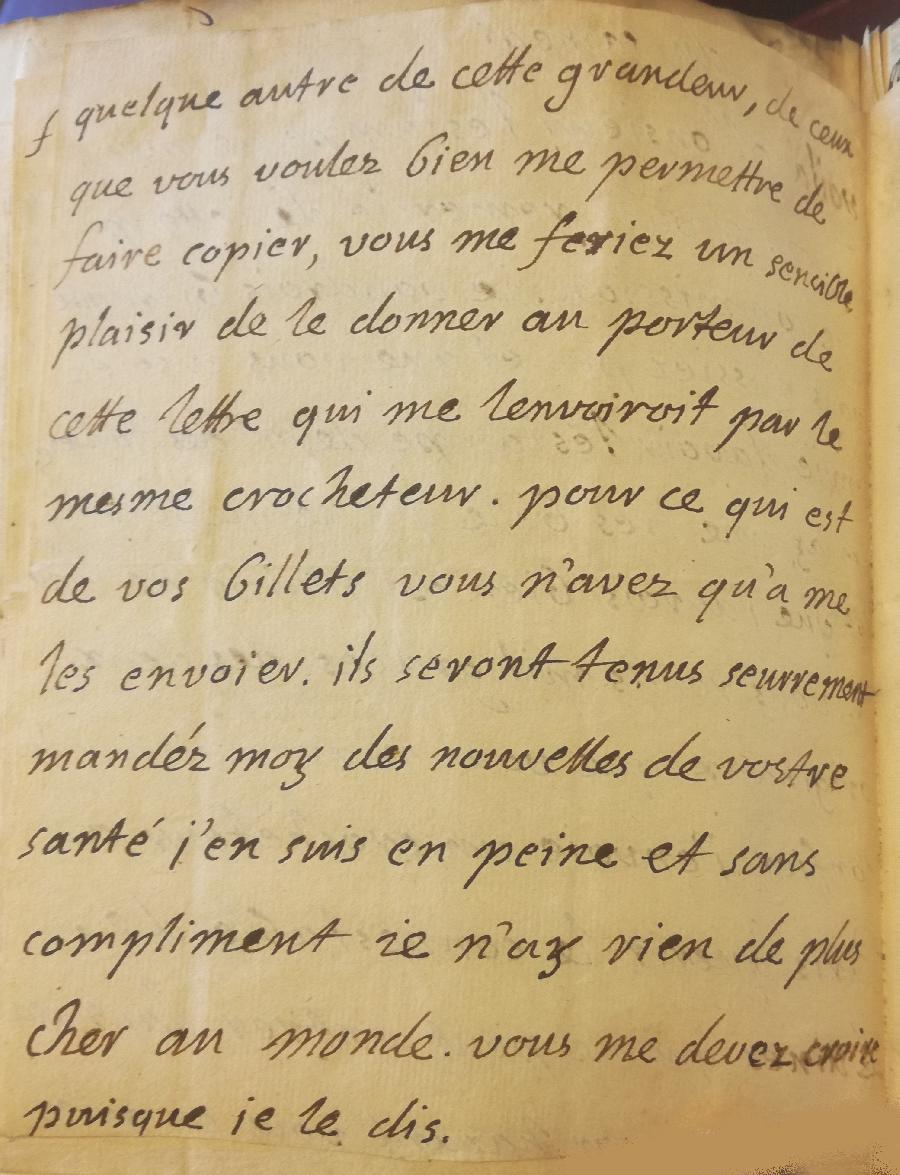 ƒ quelque autre de cette grandeur, de ceux
que vous voulez bien me permettre de
faire copier, vous me feriez un sencible
plaisir de le donner au porteur de
cette lettre qui me lenvoiroit par le
mesme crocheteur. pour ce qui est
de vos billets vous n'avez qu'a me
les envoier. ils seront tenus seurrement
mandéz moy des nouvelles de vostre
santé j'en suis en peine et sans
compliment ie n'ay rien de plus
cher au monde. vous me devez croire
puisque ie le dis.